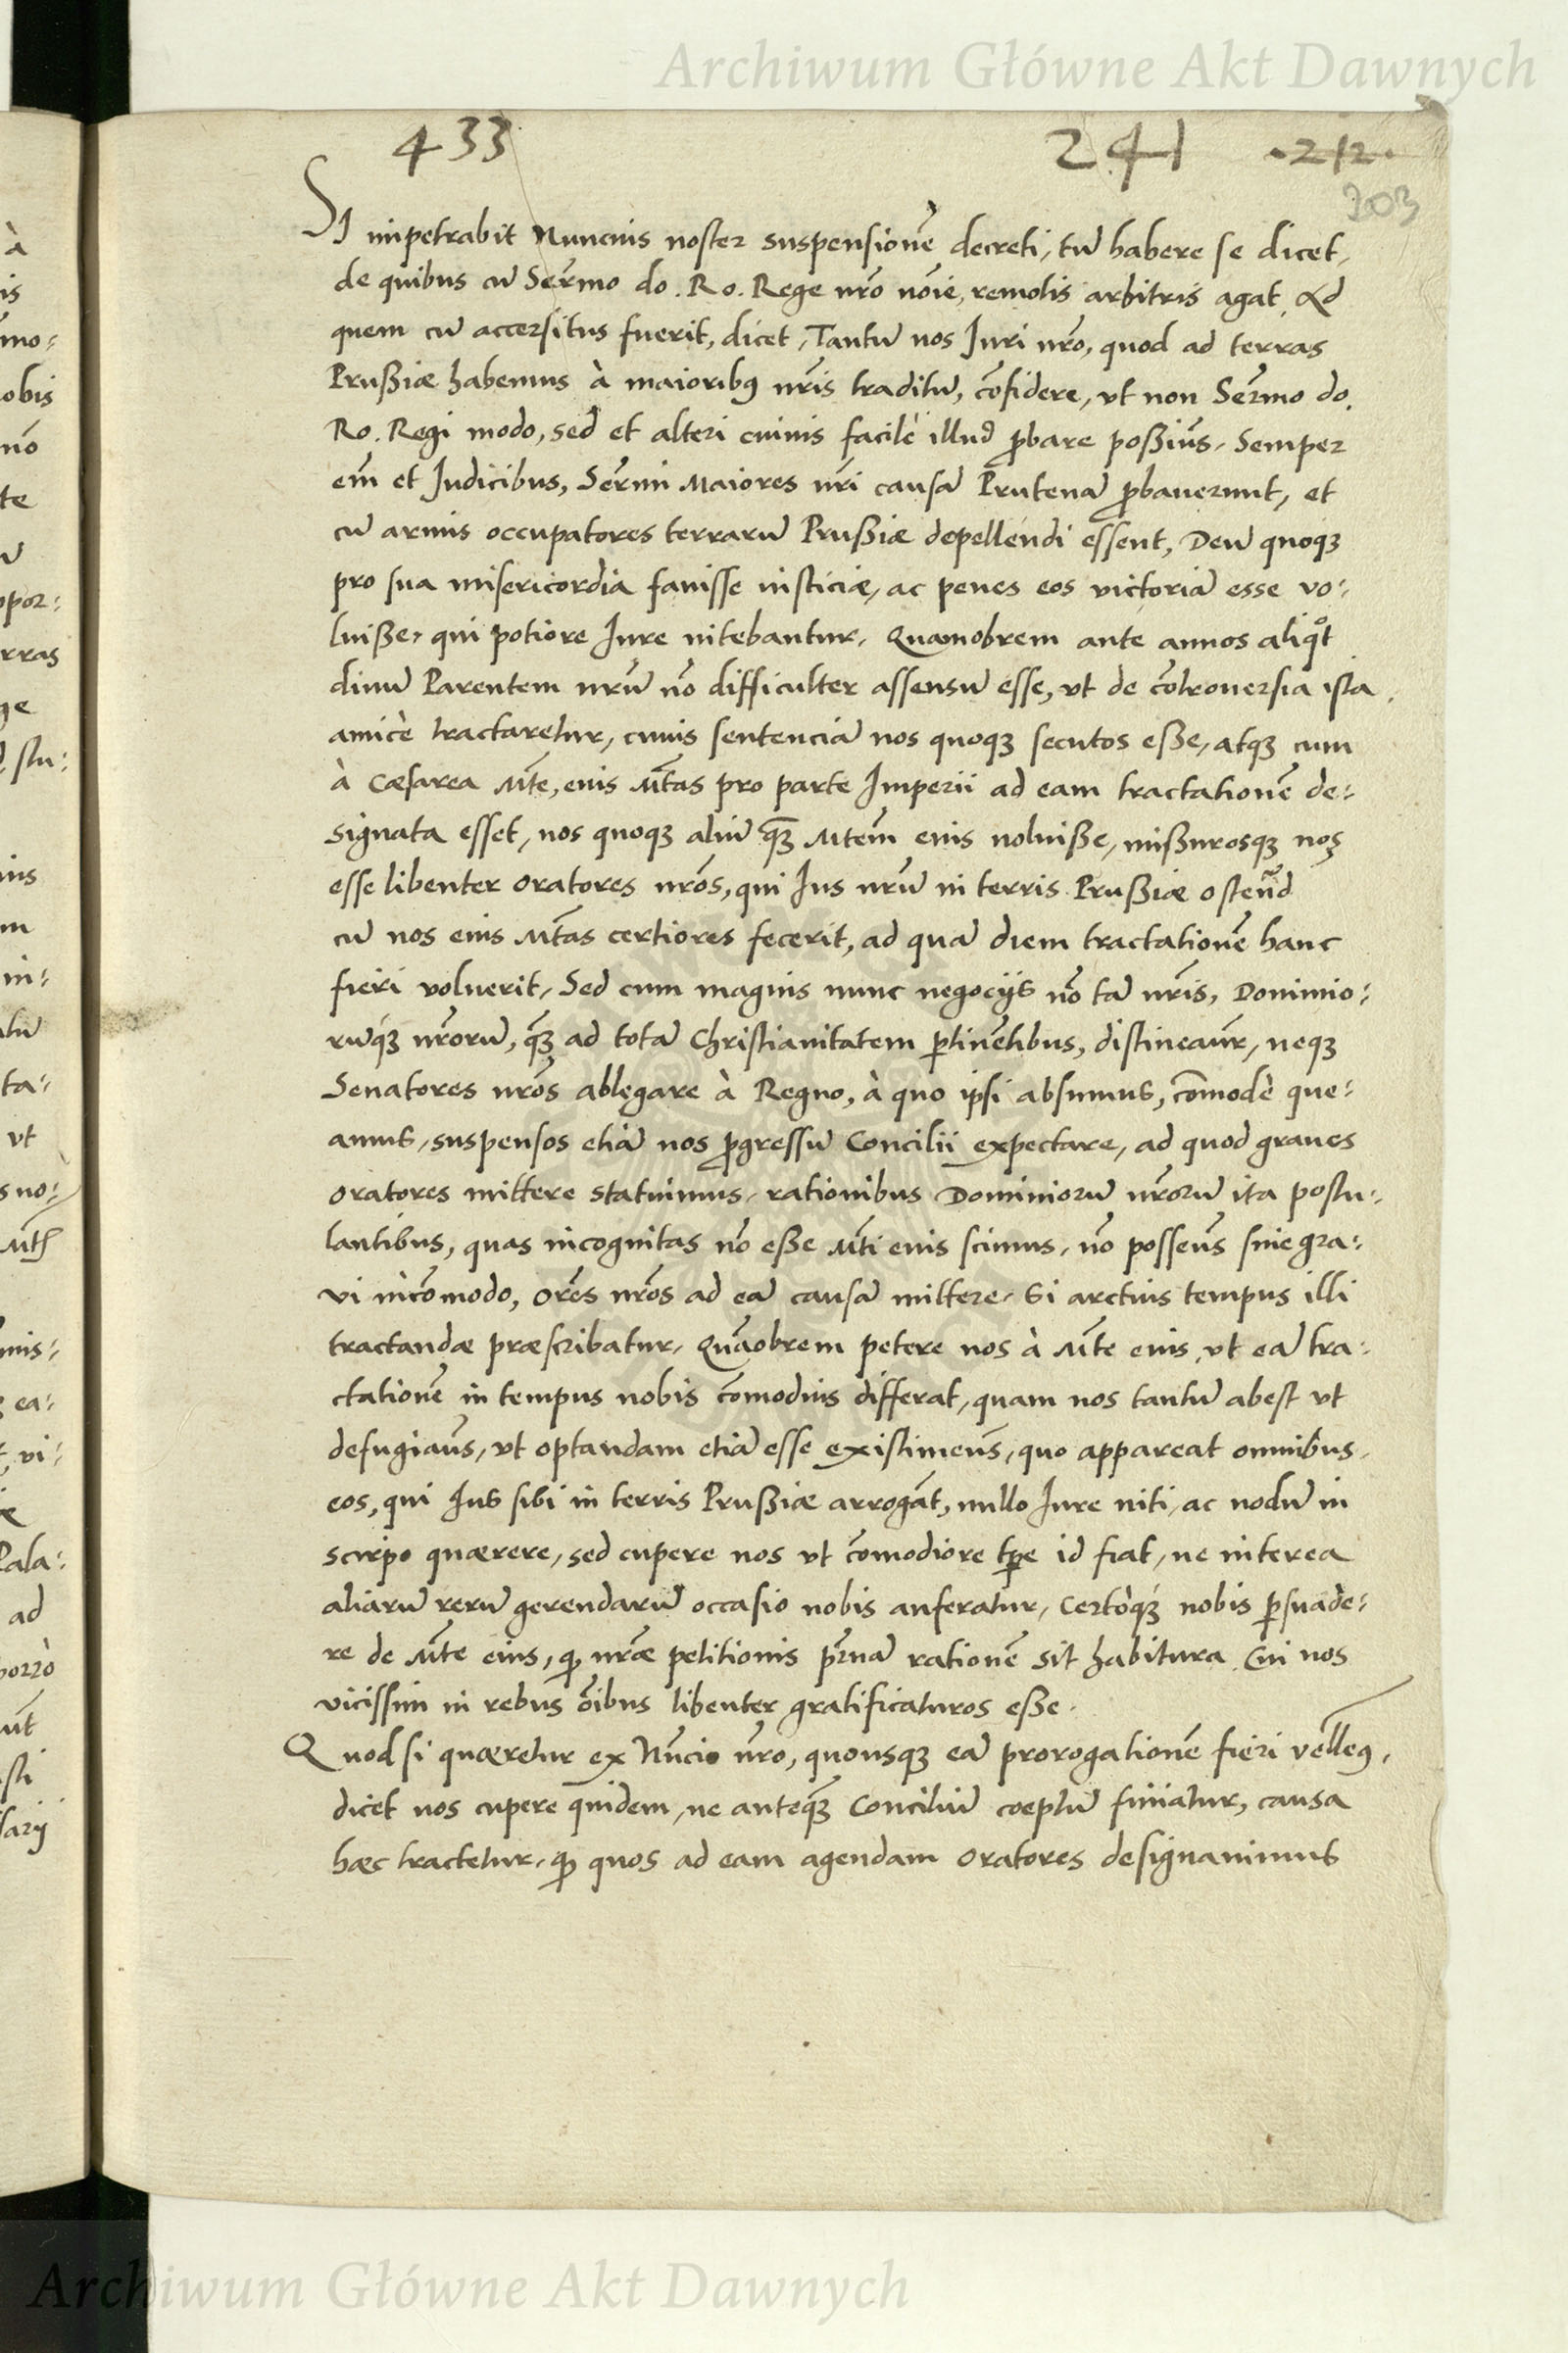 Archiwum Główne Akt Dawnych
433 241 .212.
203
SI impetrabit Nuncius noster suspensionē decreti, tū habere se dicet,
de quibus cū Serm̄o do. Ro. Rege nr̄o nōie, remotis arbitris agat. Ad
quem cū accersitus fuerit, dicet, Tantū nos Iuri nr̄o, quod ad terras
Prußiæ habemus à maioribꝰ nr̄is traditū, cōfidere, vt non Serm̄o do.
Ro. Regi modo, sed et alteri cuiuis facilè illud ꝓbare poßim̄s. Semper
em̄ et Iudicibus, Serm̄i Maiores nr̄i causā Prutenā ꝓbauerunt, et
cū armis occupatores terrarū Prußiæ depellendi essent, Deū quoqꝫ
pro sua misericordia fauisse iusticiæ, ac penes eos victoriā esse vo-
luiße, qui potiore Iure nitebantur. Quamobrem ante annos aliqͦt
diuū Parentem nr̄ū nō difficulter assensū esse, vt de cōtrouersia ista
amicè tractaretur, cuius sentenciā nos quoqꝫ secutos eße, atqꝫ cum
à Cæsarea Mt̄e, eius Mt̄as pro parte Imperii ad eam tractationē de-
signata esset, nos quoqꝫ aliū qꝫ̄ Mtem̄ eius noluiße, mißurosqꝫ nos
esse libenter oratores nr̄os, qui Ius nr̄ū in terris Prußiæ ostend̄
cū nos eius Mt̄as certiores fecerit, ad quā diem tractationē hanc
fieri voluerit. Sed cum magnis nunc negocijs nō tā nr̄is, Dominio-
rūqꝫ nr̄orū, qꝫ̄ ad totā Christianitatem ꝑtinētibus, distineam̄r, neqꝫ
Senatores nr̄os ablegare à Regno, à quo ipsi absumus, cōmodè que-
amus, suspensos etiā nos ꝓgressū Concilii expectare, ad quod graues
oratores mittere statuimus, rationibus Dominiorū nr̄orū ita postu-
lantibus, quas incognitas nō eße Mt̄i eius scimus, nō possem̄s sine gra-
vi incōmodo, or̄es nr̄os ad eā causā mittere. Si arctius tempus illi
tractandæ præscribatur. Quāobrem petere nos à Mt̄e eius, vt eā tra-
ctationē in tempus nobis cōmodius differat, quam nos tantū abest vt
defugiam̄s, vt optandam etiā esse existimem̄s, quo appareat omnibus,
eos, qui Ius sibi in terris Prußiæ arrogāt, nullo Iure niti, ac nodū in
scirpo quærere, sed cupere nos vt cōmodiore tp̄e id fiat, ne interea
aliarū rerū gerendarū occasio nobis auferatur, Certòqꝫ nobis ꝑsuade-
re de Mt̄e eius, ꝙ nr̄æ petitionis pr̄nā rationē sit habitura. Cui nos
vicissim in rebus ōibus libenter gratificaturos eße.
Quod si quæretur ex Nūcio nr̄o, quousqꝫ eā prorogationē fieri vellemꝰ,
dicet nos cupere quidem, ne anteqꝫ̄ Conciliū cœptū finiatur, causa
hæc tractetur, ꝙ quos ad eam agendam oratores designauimus
Archiwum Główne Akt Dawnych